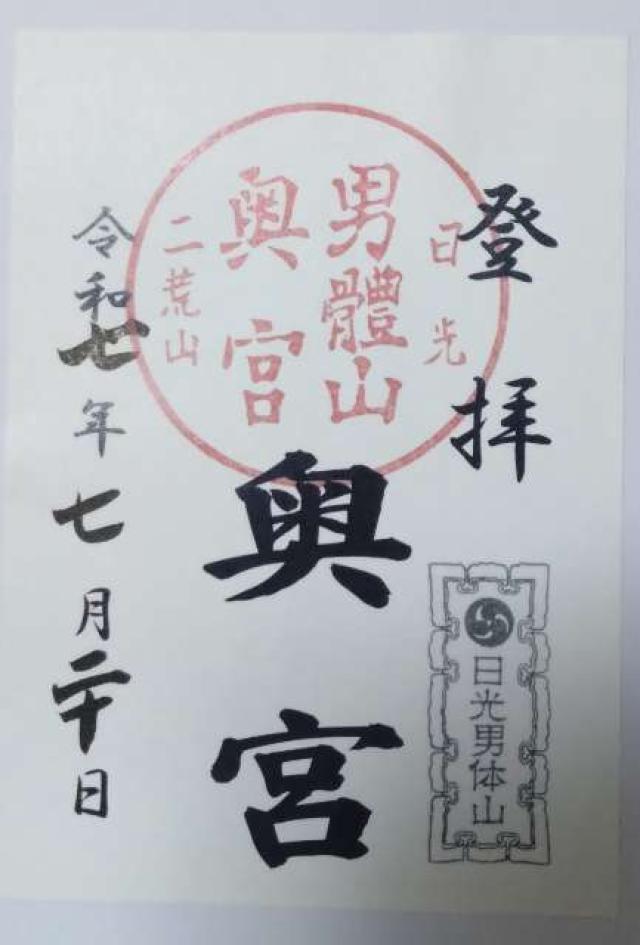 登拝
日光
男體山
奥宮
二荒山
奥宮
日光男体山
令和七年七月二十日